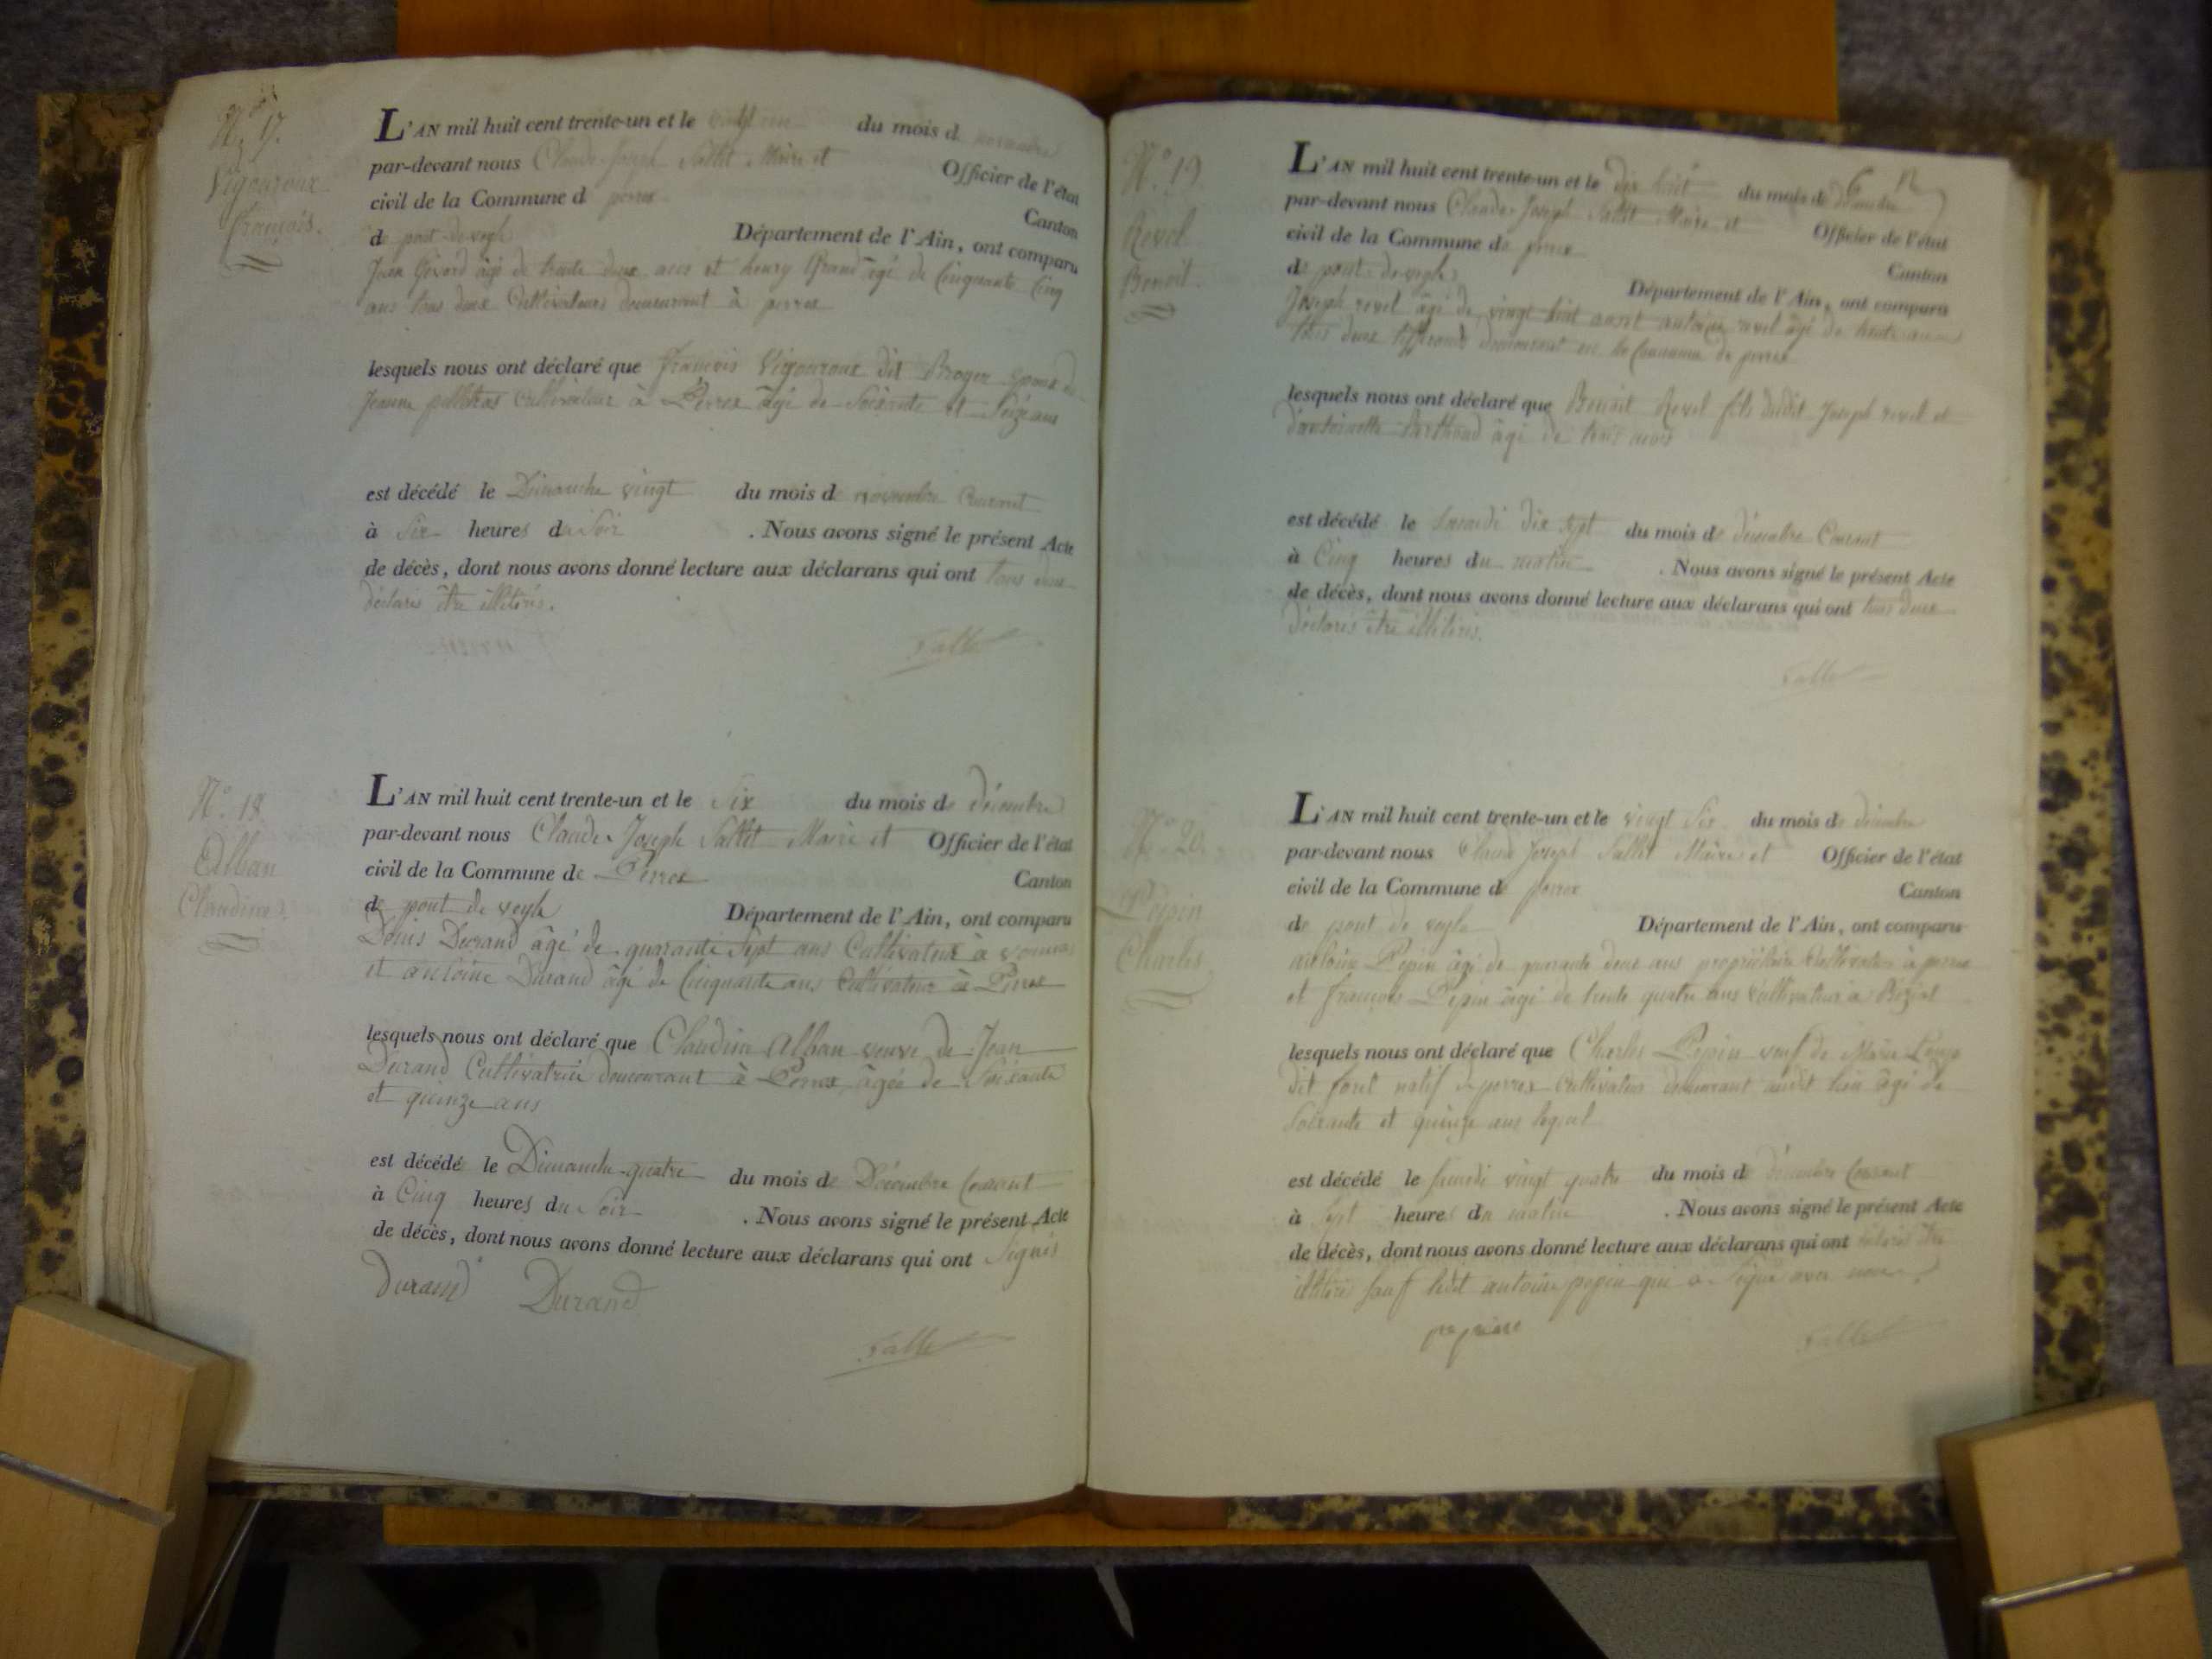 N.º 17.
Vigouroux
françois.
L'AN mil huit cent trente-un et le vingt un du mois d novembre
par-devant nous Claude Joseph Sallet Maire et Officier de l'état
civil de la Commune d perrex Canton
de pont-de-veyle Département de l'Ain, ont comparu
Jean Gérard âgé de trente deux ans et henry Grand âgé de Cinquante Cinq
ans tous deux Cultivateurs demeurant à perrex
lesquels nous ont déclaré que françois Vigouroux dit Broyer époux de
Jeanne Cultivateur à Perrex âgé de Soixante et Seize ans
est décédé le Dimanche vingt du mois de novembre Courant
à Six heures du Soir . Nous avons signé le présent Acte
de décès, dont nous avons donné lecture aux déclarans qui ont tous deux
déclarés être illitérés.
Sallet
N.º 18.
Alban
Claudine.
L'AN mil huit cent trente-un et le Six du mois de décembre
par-devant nous Claude Joseph Sallet Maire et Officier de l'état
civil de la Commune de Perrex Canton
de pont de veyle Département de l'Ain, ont comparu
Denis Durand âgé de quarante Sept ans Cultivateur à vonnas
et antoine Durand âgé de Cinquante ans Cultivateur à Perrex
lesquels nous ont déclaré que Claudine Alban veuve de Jean
Durand Cultivatrice demeurant à Perrex âgée de Soixante
et quinze ans
est décédé le Dimanche quatre du mois de Décembre Courant
à Cinq heures du Soir . Nous avons signé le présent Acte
de décès, dont nous avons donné lecture aux déclarans qui ont Signés
Durand Durand
Sallet
N.º 19
Revel
Benoit.
L'AN mil huit cent trente-un et le dix huit du mois de décembre
par-devant nous Claude Joseph Sallet Maire et Officier de l'état
civil de la Commune de perrex Canton
de pont-de-veyle Département de l'Ain, ont comparu
Joseph revel âgé de vingt huit ans et antoine revel âgé de trente ans
tous deux demeurant en la Commune de perrex
lesquels nous ont déclaré que Benoit Revel fils dudit Joseph revel et
d'antoinette Berthoud âgé de trois mois
est décédé le Samedi dix sept du mois de décembre Courant
à Cinq heures du matin . Nous avons signé le présent Acte
de décès, dont nous avons donné lecture aux déclarans qui ont tous deux
déclarés être illitérés.
Sallet
N.º 20.
Pepin
Charles
L'AN mil huit cent trente-un et le vingt Six du mois de décembre
par-devant nous Claude Joseph Sallet Maire et Officier de l'état
civil de la Commune de perrex Canton
de pont de veyle Département de l'Ain, ont comparu
antoine Pepin âgé de quarante deux ans propriétaire Cultivateur à perrex
et françois Pepin âgé de trente quatre ans Cultivateur à Biziat
lesquels nous ont déclaré que Charles Pepin veuf de Marie
dit foret natif de perrex Cultivateur demeurant audit lieu âgé de
Soixante et quinze ans lequel
est décédé le Samedi vingt quatre du mois de décembre Courant
à Sept heures du matin . Nous avons signé le présent Acte
de décès, dont nous avons donné lecture aux déclarans qui ont déclarés être
illitéré Sauf ledit antoine pepin qui a Signé avec nous.
Sallet